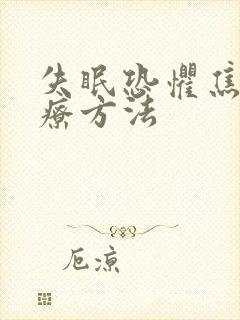 失眠恐惧焦
疗方法
厄凉